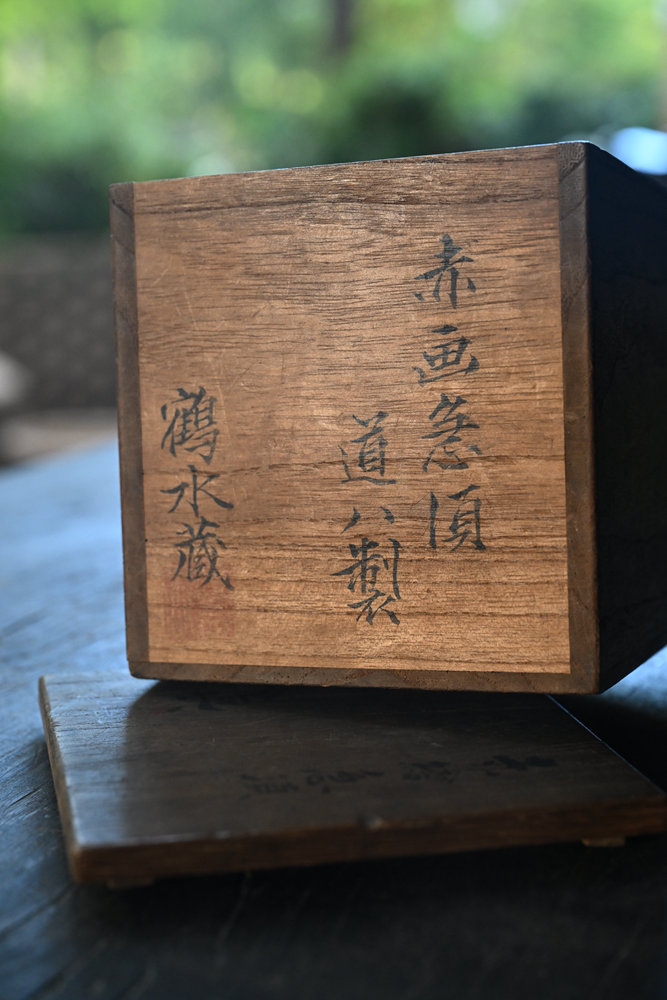 赤画急須
道八製
鶴水蔵